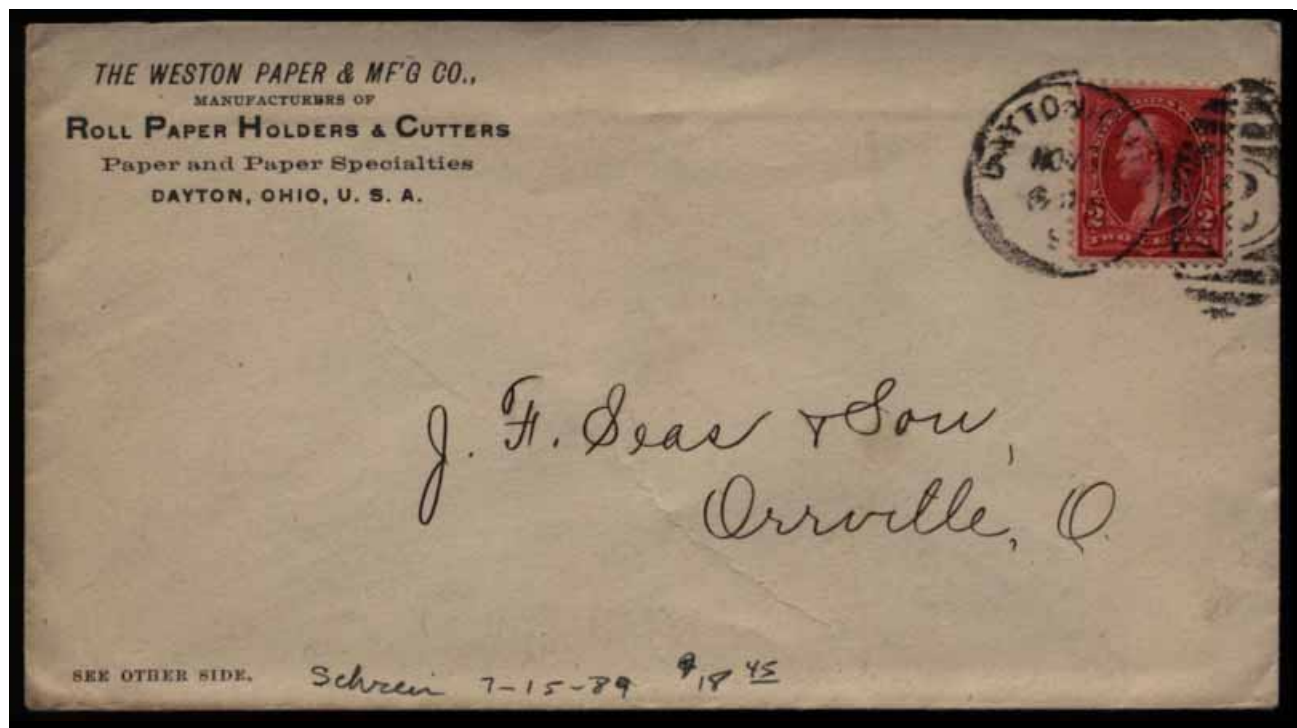 THE WESTON PAPER & MF'G CO.,
MANUFACTURERS OF
ROLL PAPER HOLDERS & CUTTERS
Paper and Paper Specialties
DAYTON, OHIO, U. S. A.
DAYTON
NOV
2 2
TWO CENTS
J. F. Seas & Son,
Orrville, O.
SEE OTHER SIDE.
Schrein 7-15-89 $18 45